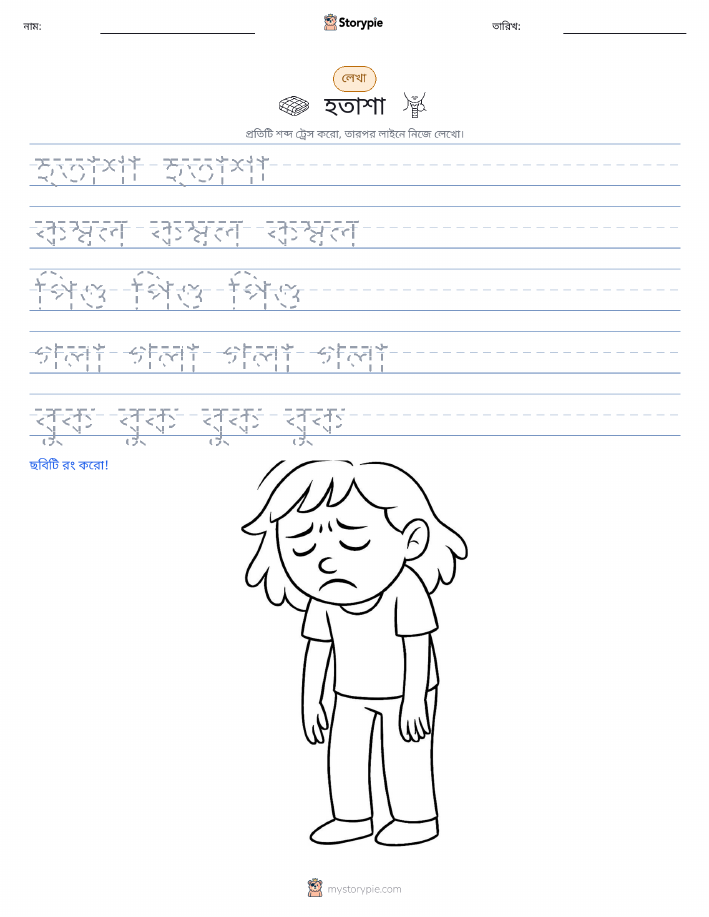 নাম:
Storypie
তারিখ:
লেখা
হতাশা
প্রতিটি শব্দ ট্রেস করো, তারপর লাইনে নিজে লেখো।
হতাশা হতাশা
কম্বল কম্বল কম্বল
পিণ্ড পিণ্ড পিণ্ড
গলা গলা গলা গলা
বুক বুক বুক বুক
ছবিটি রং করো!
mystorypie.com